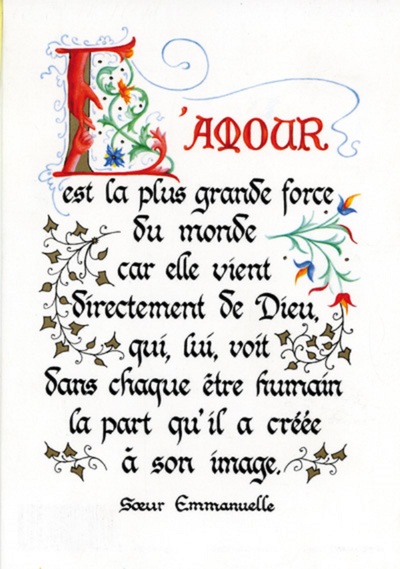 L'AMOUR
est la plus grande force
du monde
car elle vient
directement de Dieu,
qui, lui, voit
dans chaque être humain
la part qu'il a créée
à son image.
Sœur Emmanuelle